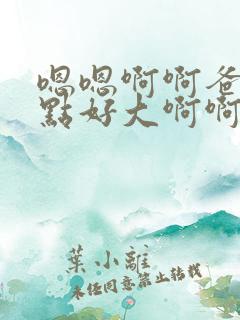 嗯嗯啊啊爸
點好大啊啊
葉小離
未經同意禁止轉載